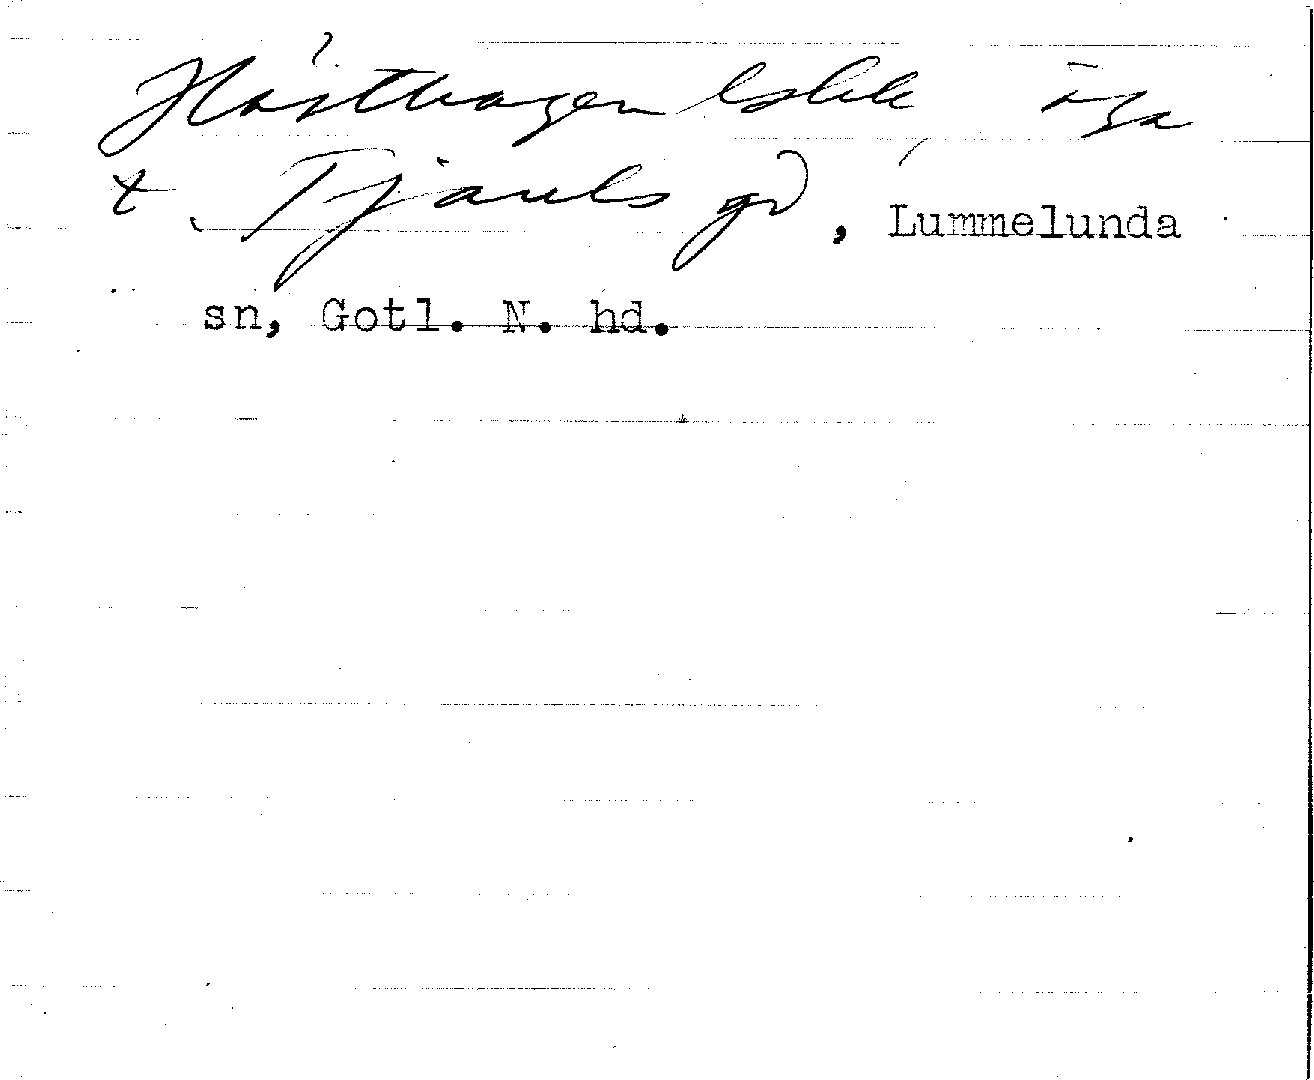 Hästhagen lskl, äga
t. Tjauls gd, Lummelunda
sn, Gotl. N. hd.